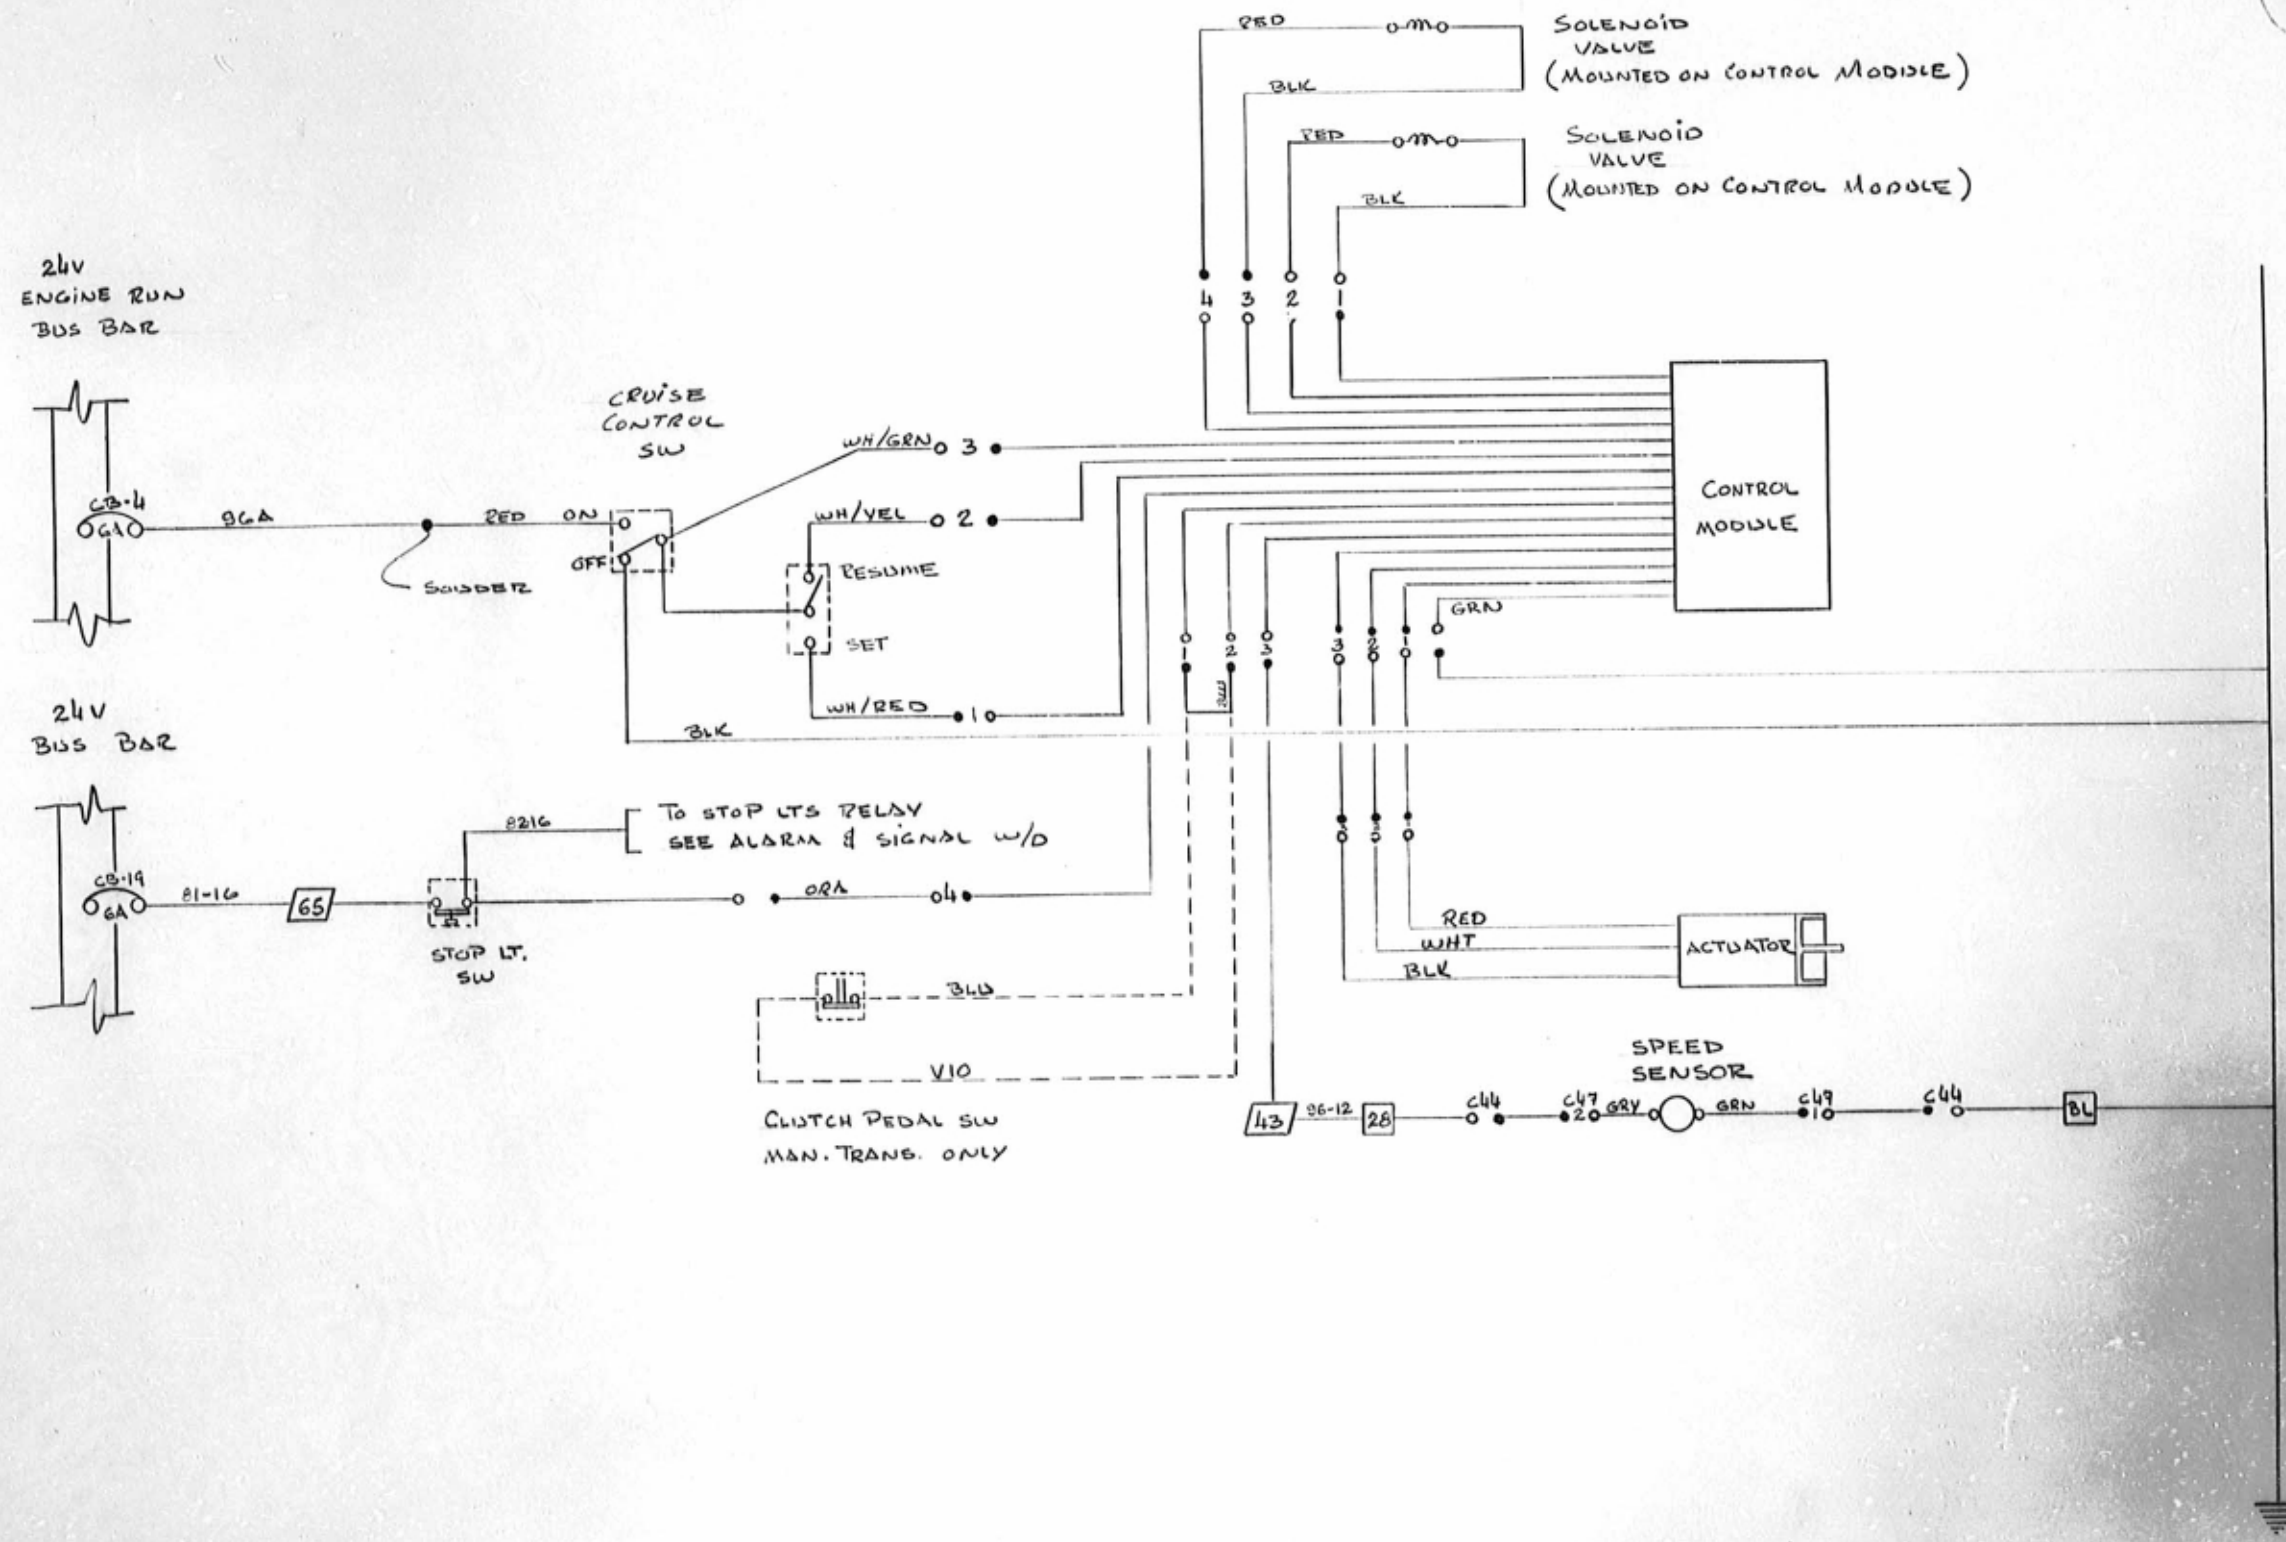 RED
SOLENOID
VALVE
(MOUNTED ON CONTROL MODULE)
BLK
RED
SOLENOID
VALVE
(MOUNTED ON CONTROL MODULE)
BLK
4 3 2 1
24V
ENGINE RUN
BUS BAR
CRUISE
CONTROL
SW
WH/GRN 3
CB-4
6A
96A
RED
ON
OFF
SOLDER
WH/YEL 2
RESUME
SET
WH/RED 1
BLK
CONTROL
MODULE
GRN
1 2 3
3 2 1
BLU
24V
BUS BAR
8216
TO STOP LTS RELAY
SEE ALARM & SIGNAL W/D
CB-19
6A
81-16
65
STOP LT.
SW
ORA
4
RED
WHT
BLK
ACTUATOR
BLU
VIO
CLUTCH PEDAL SW
MAN. TRANS. ONLY
SPEED
SENSOR
43
96-12
28
C44
C47
2
GRY
GRN
C49
1
C44
BL